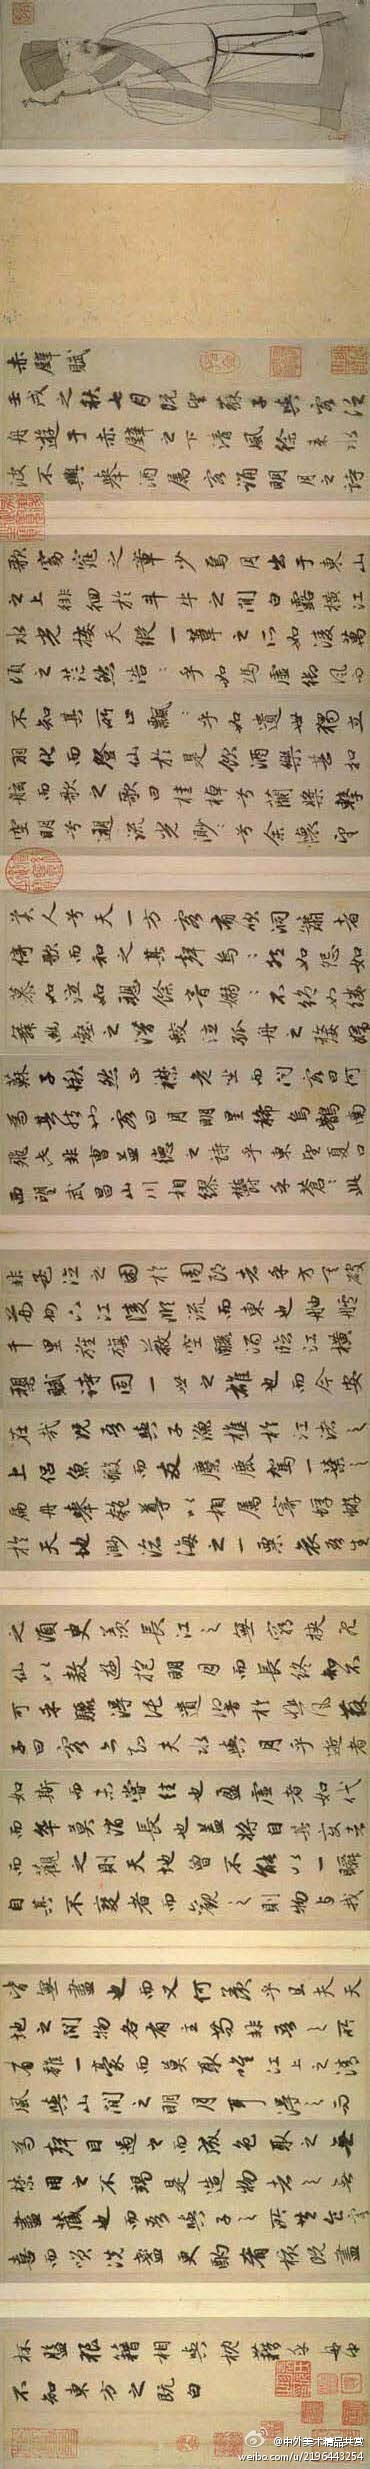 赤壁賦
壬戌之秋七月既望蘇子與客泛
舟遊于赤壁之下清風徐來水
波不興舉酒屬客誦明月之詩
歌窈窕之章少焉月出于東山
之上徘徊於斗牛之間白露橫江
水光接天縱一葦之所如凌萬
頃之茫然浩〻乎如馮虛御風而
不知其所止飄〻乎如遺世獨立
羽化而登仙於是飲酒樂甚扣
舷而歌之歌曰桂棹兮蘭槳擊
空明兮遡流光渺〻兮余懷望
美人兮天一方客有吹洞簫者
倚歌而和之其聲烏〻然如怨如
慕如泣如訴餘音嫋〻不絕如縷
舞幽壑之潛蛟泣孤舟之嫠婦
蘇子愀然正襟危坐而問客曰何
為其然也客曰月明星稀烏鵲南
飛此非曹孟德之詩乎東望夏口
西望武昌山川相繆鬱乎蒼〻此
非孟德之困於周郎者乎方其破
荊州下江陵順流而東也舳艫
千里旌旗蔽空釃酒臨江橫
槊賦詩固一世之雄也而今安
在哉況吾與子漁樵於江渚之
上侶魚蝦而友麋鹿駕一葉之
扁舟舉匏尊以相屬寄蜉蝣
於天地渺滄海之一粟哀吾生
之須臾羨長江之無窮挾飛
仙以遨遊抱明月而長終知不
可乎驟得託遺響於悲風蘇
子曰客亦知夫水與月乎逝者
如斯而未嘗往也盈虛者如代
而卒莫消長也蓋將自其變者
而觀之則天地曾不能以一瞬
自其不變者而觀之則物與我
皆無盡也而又何羨乎且夫天
地之間物各有主苟非吾之所
有雖一豪而莫取惟江上之清
風與山間之明月耳得之而
為聲目遇之而成色取之無
禁用之不竭是造物者之無
盡藏也而吾與子之所共食客
喜而笑洗盞更酌肴核既盡
杯盤狼藉相與枕藉乎舟中
不知東方之既白
@中外美术精品共赏
weibo.com/u/2196443254